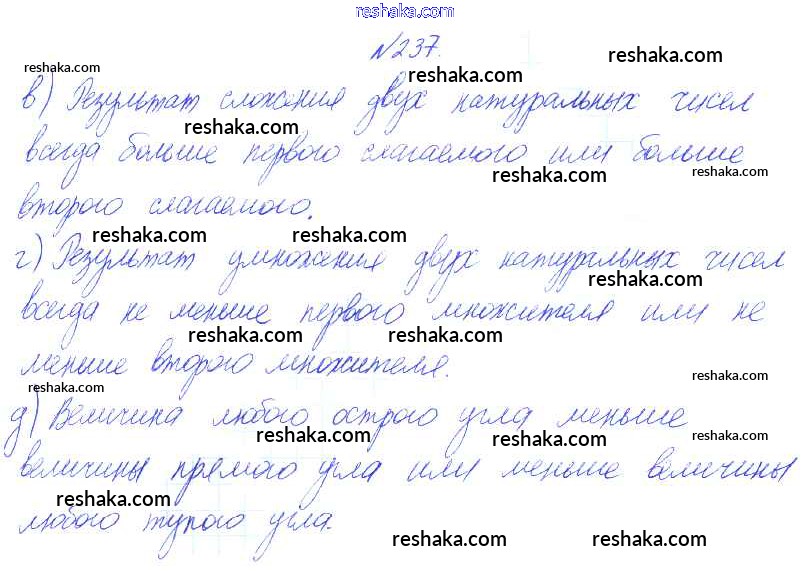 reshaka.com
№237.
reshaka.com
reshaka.com
в) Результат сложения двух натуральных чисел
reshaka.com
reshaka.com
всегда больше первого слагаемого или больше
reshaka.com
reshaka.com
второго слагаемого.
reshaka.com
reshaka.com
г) Результат умножения двух натуральных чисел
reshaka.com
всегда не меньше первого множителя или не
reshaka.com
reshaka.com
меньше второго множителя.
reshaka.com
reshaka.com
д) Величина любого острого угла меньше
reshaka.com
reshaka.com
reshaka.com
величины прямого угла или меньше величины
reshaka.com
любого тупого угла.
reshaka.com
reshaka.com